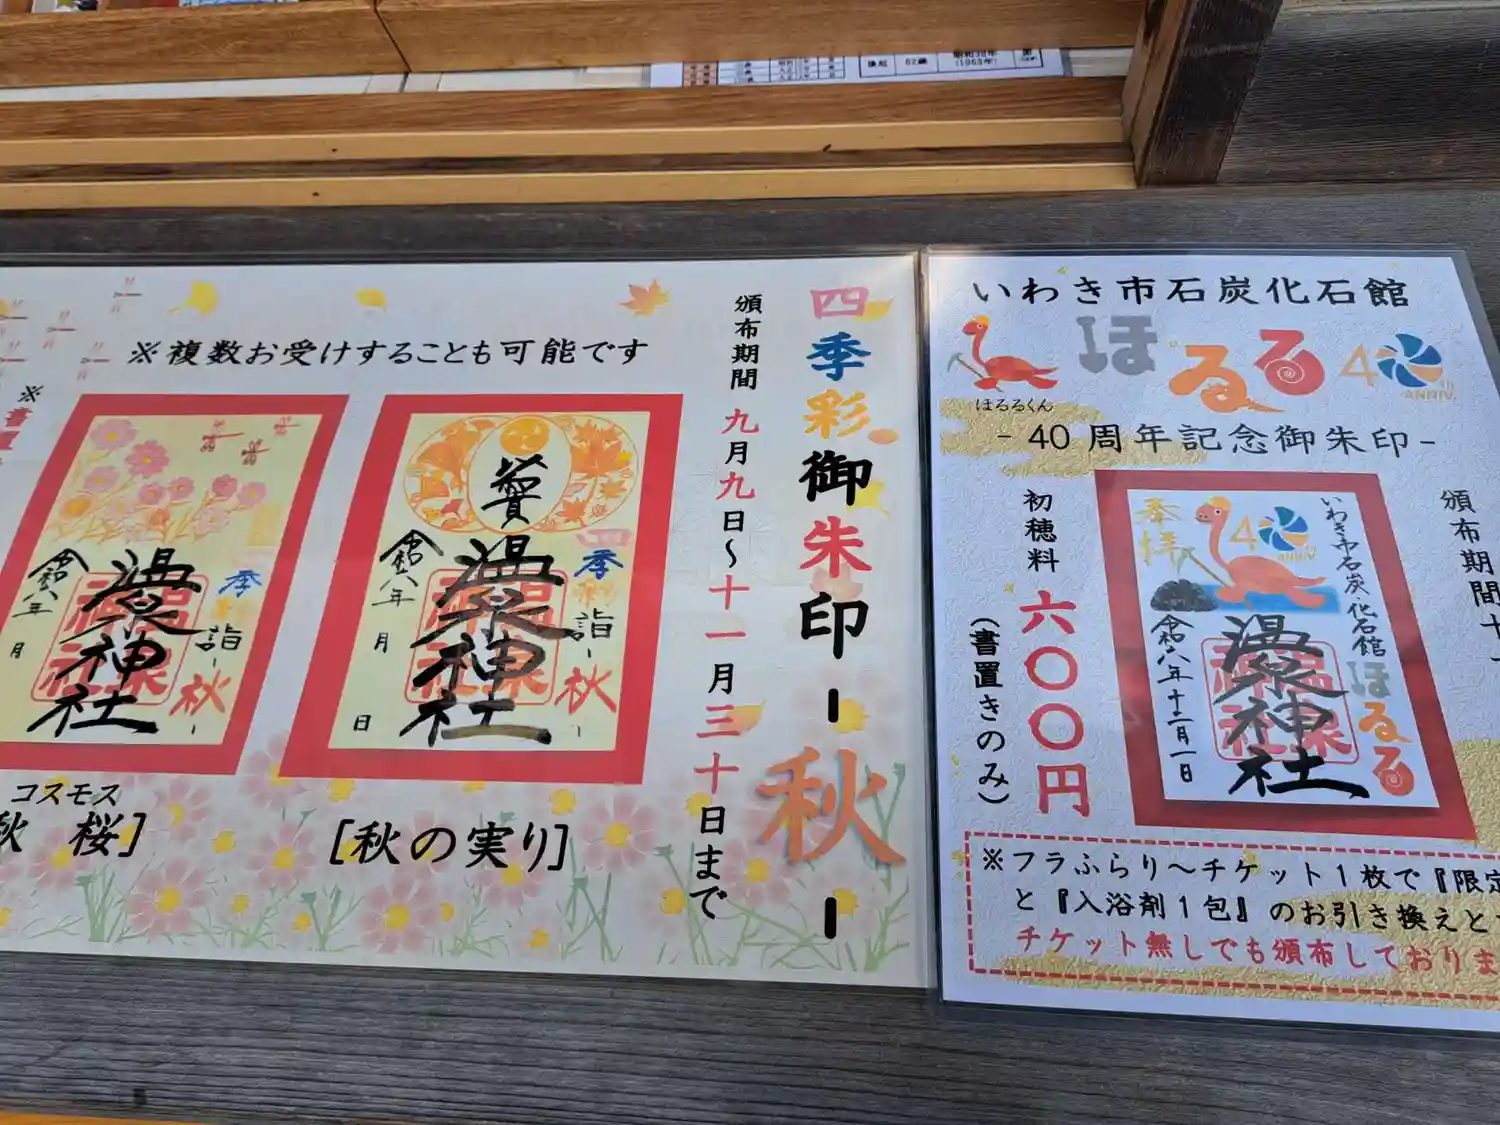 昭和38年
後厄
62歳
(1963年)
四季彩御朱印-秋-
頒布期間 九月九日～十一月三十日まで
※複数お受けすることも可能です
四季彩
詣-秋-
温泉神社
令和八年 月 日
[秋の実り]
四季
詣-秋-
温泉神社
令和八年 月
コスモス
秋桜]
※書置
いわき市石炭化石館
ほるる
40
th
ANNIV.
ほるるくん
-40周年記念御朱印-
頒布期間十
初穂料 六〇〇円
(書置きのみ)
奉拝
40
ANNIV.
いわき市石炭・化石館
ほるる
温泉神社
令和八年十二月一日
※フラふらり～チケット1枚で『限定
と『入浴剤1包』のお引き換えと
チケット無しでも頒布しておりま